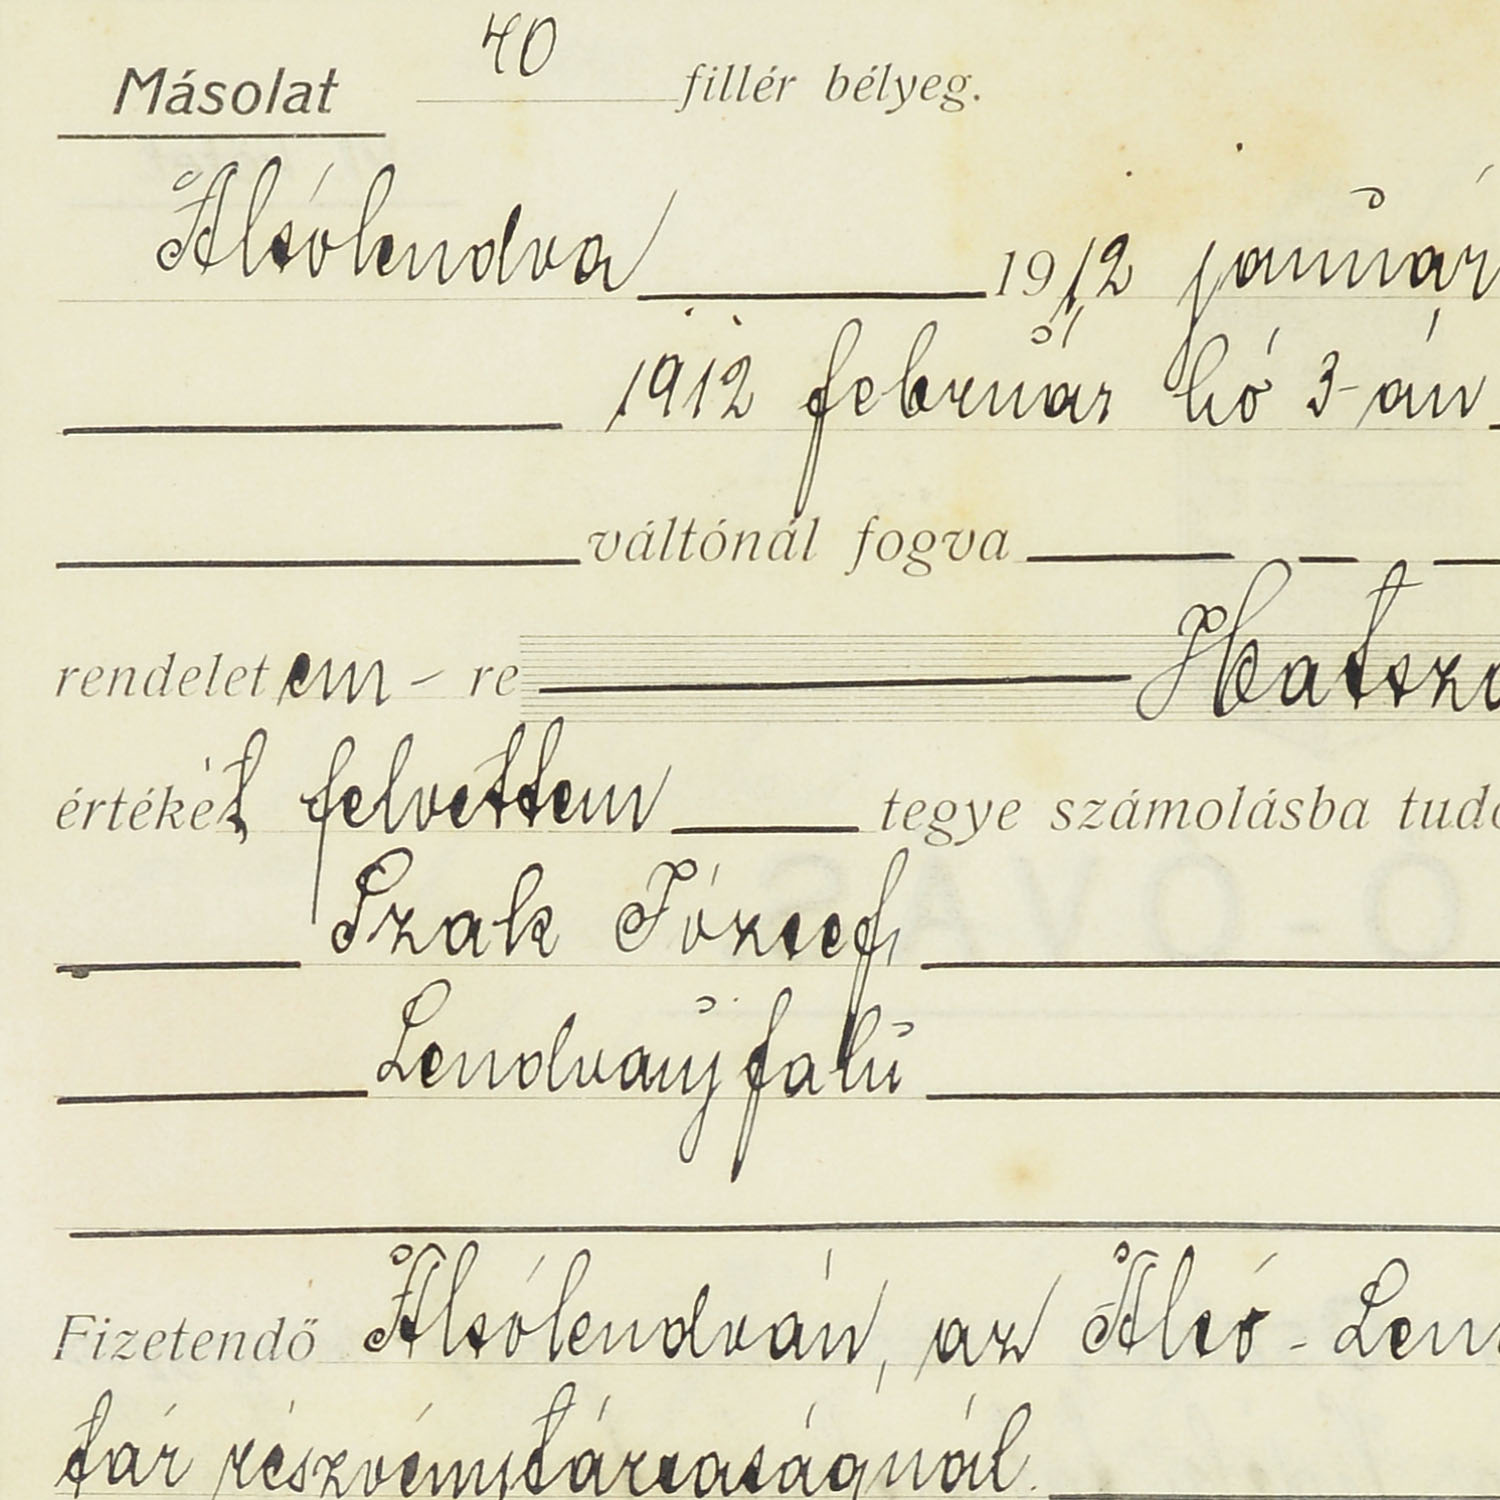 Másolat 40 fillér bélyeg.
Alsólendva 1912 január
1912 február hó 3-án
váltónál fogva
rendeletem - re Hatszá
értékét felvettem tegye számolásba tudó
Szak József,
Lendvaujfalu
Fizetendő Alsólendván, az Alsó - Len
tár részvénytársaságnál.